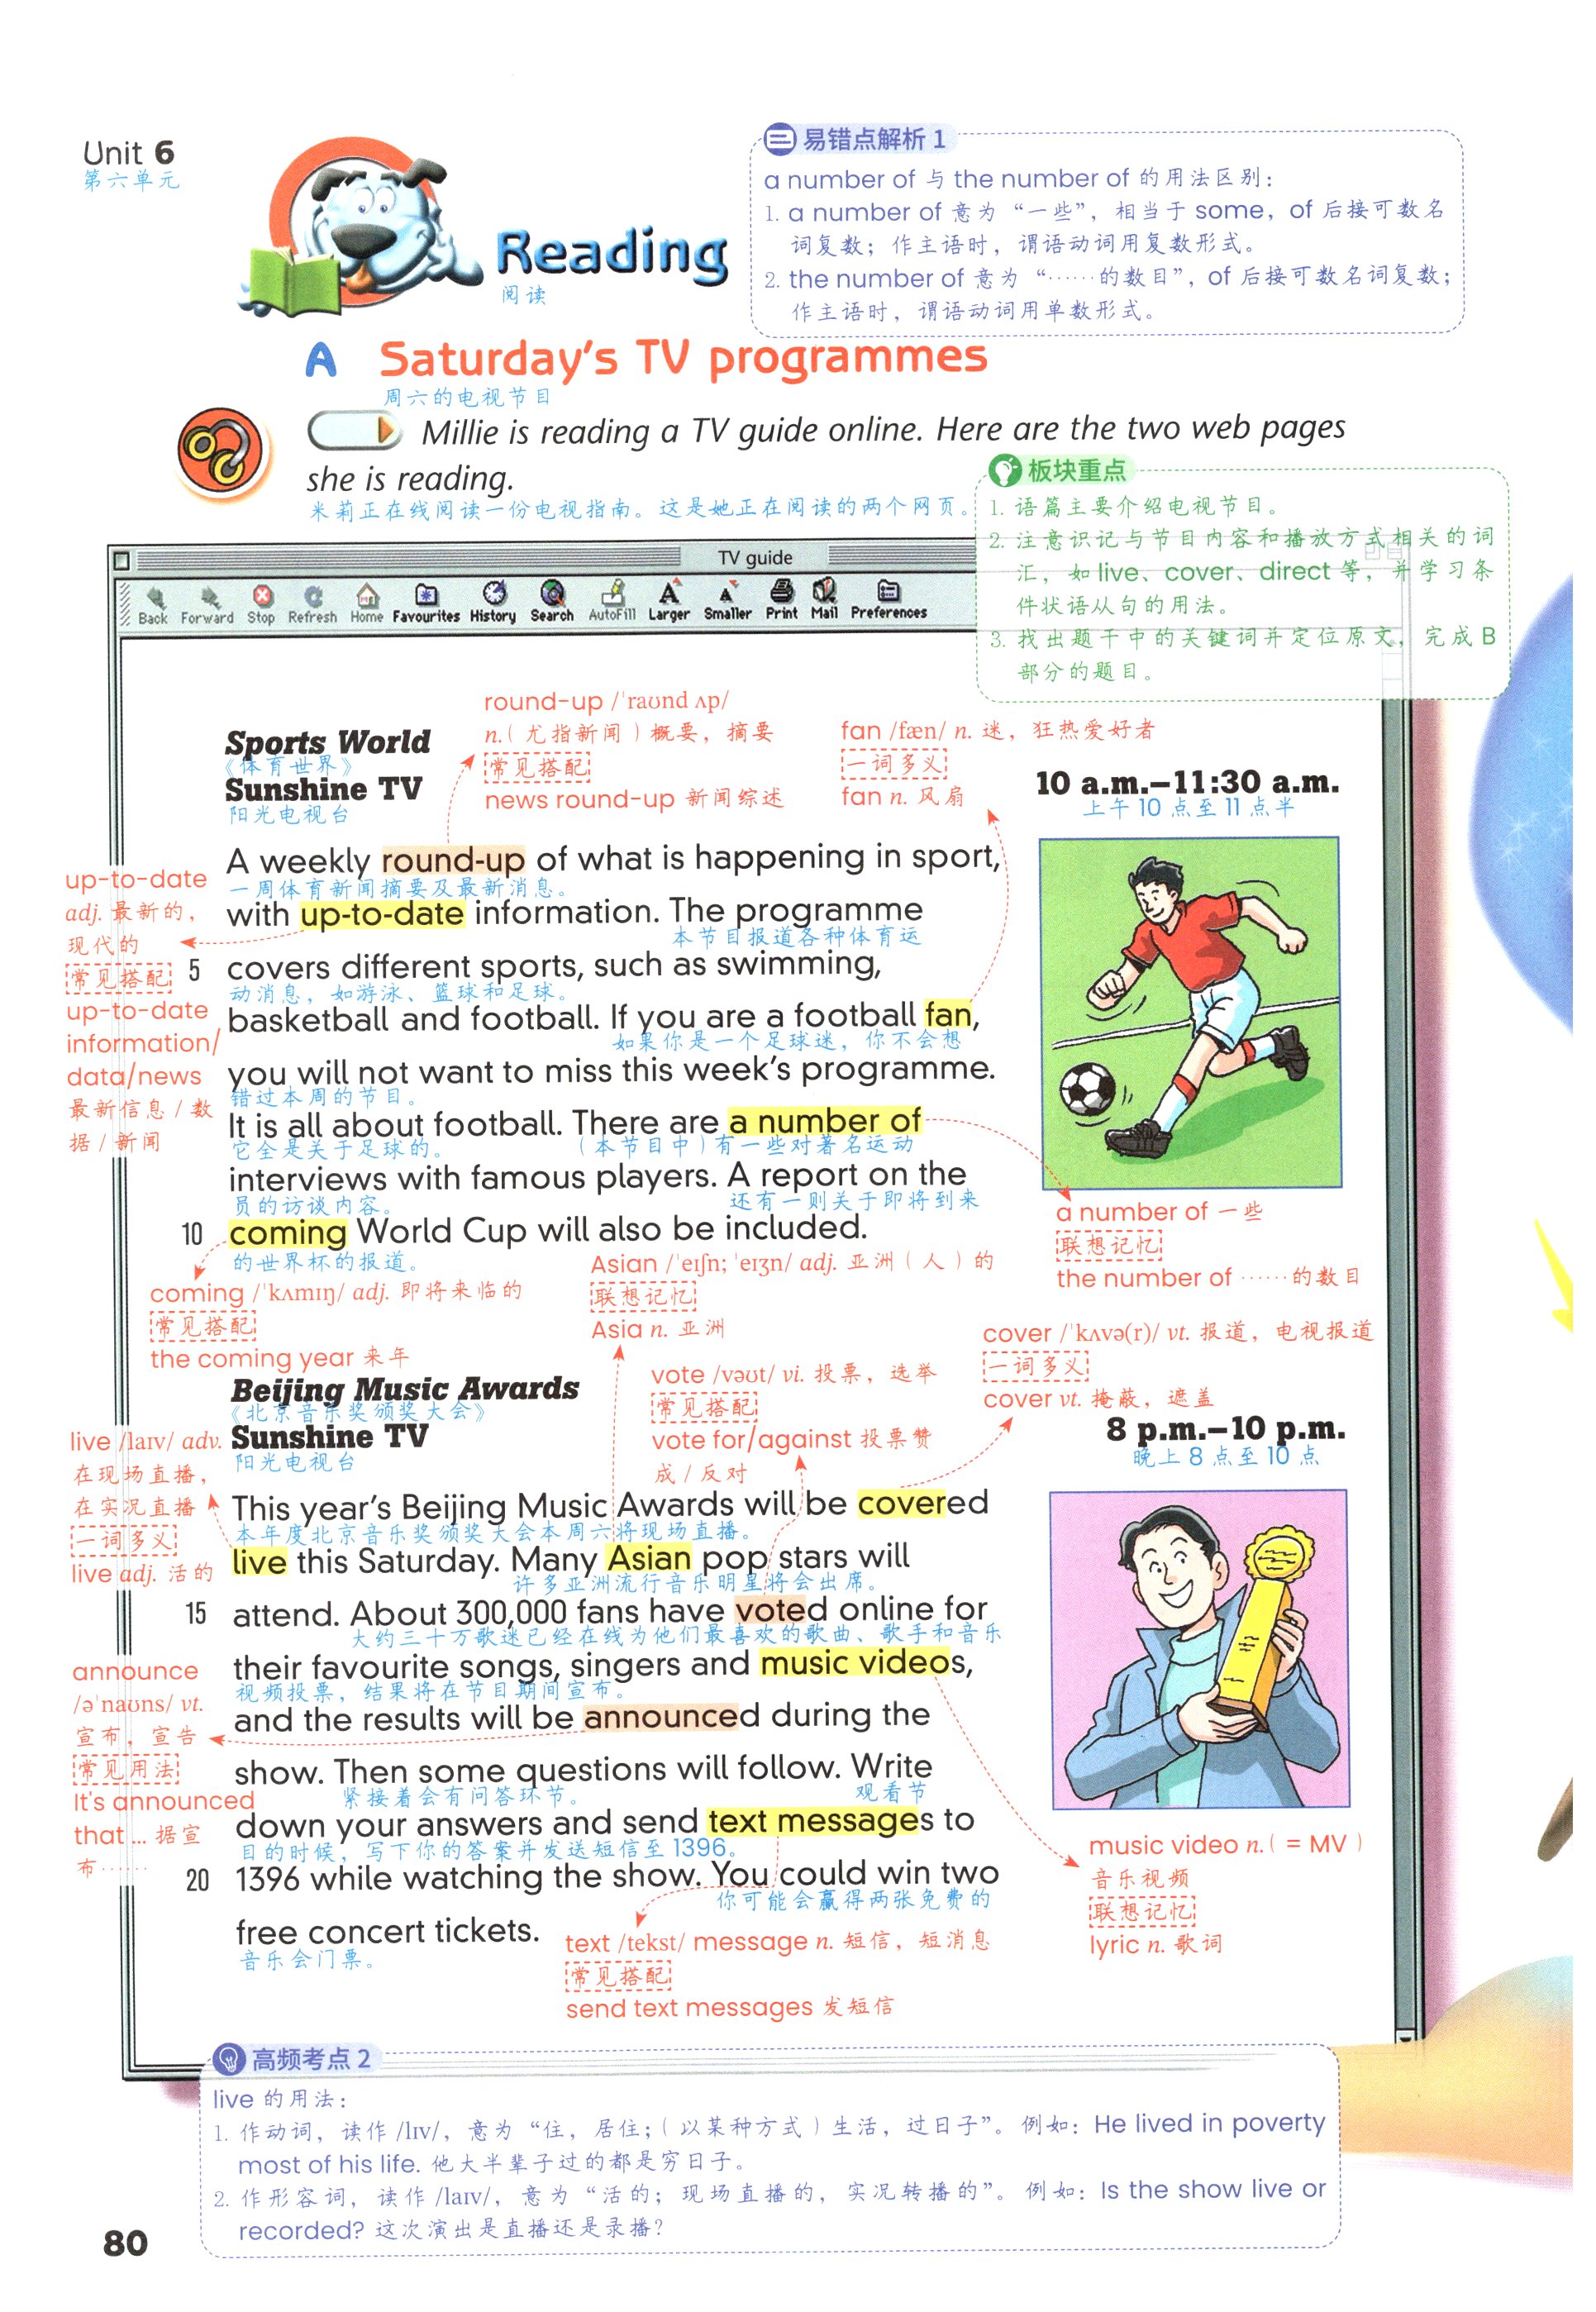 Unit 6
第六单元
Reading
阅读
易错点解析 1
a number of 与 the number of 的用法区别：
1. a number of 意为“一些”，相当于 some，of 后接可数名
词复数；作主语时，谓语动词用复数形式。
2. the number of 意为“……的数目”，of 后接可数名词复数；
作主语时，谓语动词用单数形式。
A Saturday's TV programmes
周六的电视节目
Millie is reading a TV guide online. Here are the two web pages
she is reading.
米莉正在线阅读一份电视指南。这是她正在阅读的两个网页。
板块重点
1. 语篇主要介绍电视节目。
2. 注意识记与节目内容和播放方式相关的词
汇，如 live、cover、direct 等，并学习条
件状语从句的用法。
3. 找出题干中的关键词并定位原文，完成 B
部分的题目。
TV guide
Back Forward Stop Refresh Home Favourites History Search AutoFill Larger Smaller Print Mail Preferences
round-up /ˈraʊnd ʌp/
n.（尤指新闻）概要，摘要
常见搭配
news round-up 新闻综述
fan /fæn/ n. 迷，狂热爱好者
一词多义
fan n. 风扇
Sports World
《体育世界》
Sunshine TV
阳光电视台
10 a.m.–11:30 a.m.
上午 10 点至 11 点半
A weekly round-up of what is happening in sport,
一周体育新闻摘要及最新消息。
with up-to-date information. The programme
本节目报道各种体育运
5 covers different sports, such as swimming,
动消息，如游泳、篮球和足球。
basketball and football. If you are a football fan,
如果你是一个足球迷，你不会想
you will not want to miss this week's programme.
错过本周的节目。
It is all about football. There are a number of
它全是关于足球的。 （本节目中）有一些对著名运动
interviews with famous players. A report on the
员的访谈内容。 还有一则关于即将到来
10 coming World Cup will also be included.
的世界杯的报道。
up-to-date
adj. 最新的，
现代的
常见搭配
up-to-date
information/
data/news
最新信息 / 数
据 / 新闻
a number of 一些
联想记忆
the number of ……的数目
coming /ˈkʌmɪŋ/ adj. 即将来临的
常见搭配
the coming year 来年
Asian /ˈeɪʃn; ˈeɪʒn/ adj. 亚洲（人）的
联想记忆
Asia n. 亚洲
vote /vəʊt/ vi. 投票，选举
常见搭配
vote for/against 投票赞
成 / 反对
cover /ˈkʌvə(r)/ vt. 报道，电视报道
一词多义
cover vt. 掩蔽，遮盖
Beijing Music Awards
《北京音乐奖颁奖大会》
Sunshine TV
阳光电视台
8 p.m.–10 p.m.
晚上 8 点至 10 点
live /laɪv/ adv.
在现场直播，
在实况直播
一词多义
live adj. 活的
This year's Beijing Music Awards will be covered
本年度北京音乐奖颁奖大会本周六将现场直播。
live this Saturday. Many Asian pop stars will
许多亚洲流行音乐明星将会出席。
15 attend. About 300,000 fans have voted online for
大约三十万歌迷已经在线为他们最喜欢的歌曲、歌手和音乐
their favourite songs, singers and music videos,
视频投票，结果将在节目期间宣布。
and the results will be announced during the
show. Then some questions will follow. Write
紧接着会有问答环节。 观看节
down your answers and send text messages to
目的时候，写下你的答案并发送短信至 1396。
20 1396 while watching the show. You could win two
你可能会赢得两张免费的
free concert tickets.
音乐会门票。
announce
/əˈnaʊns/ vt.
宣布，宣告
常见用法
It's announced
that ... 据宣
布……
music video n.（ = MV ）
音乐视频
联想记忆
lyric n. 歌词
text /tekst/ message n. 短信，短消息
常见搭配
send text messages 发短信
高频考点 2
live 的用法：
1. 作动词，读作 /lɪv/，意为“住，居住；（以某种方式）生活，过日子”。例如：He lived in poverty
most of his life. 他大半辈子过的都是穷日子。
2. 作形容词，读作 /laɪv/，意为“活的；现场直播的，实况转播的”。例如：Is the show live or
recorded? 这次演出是直播还是录播？
80